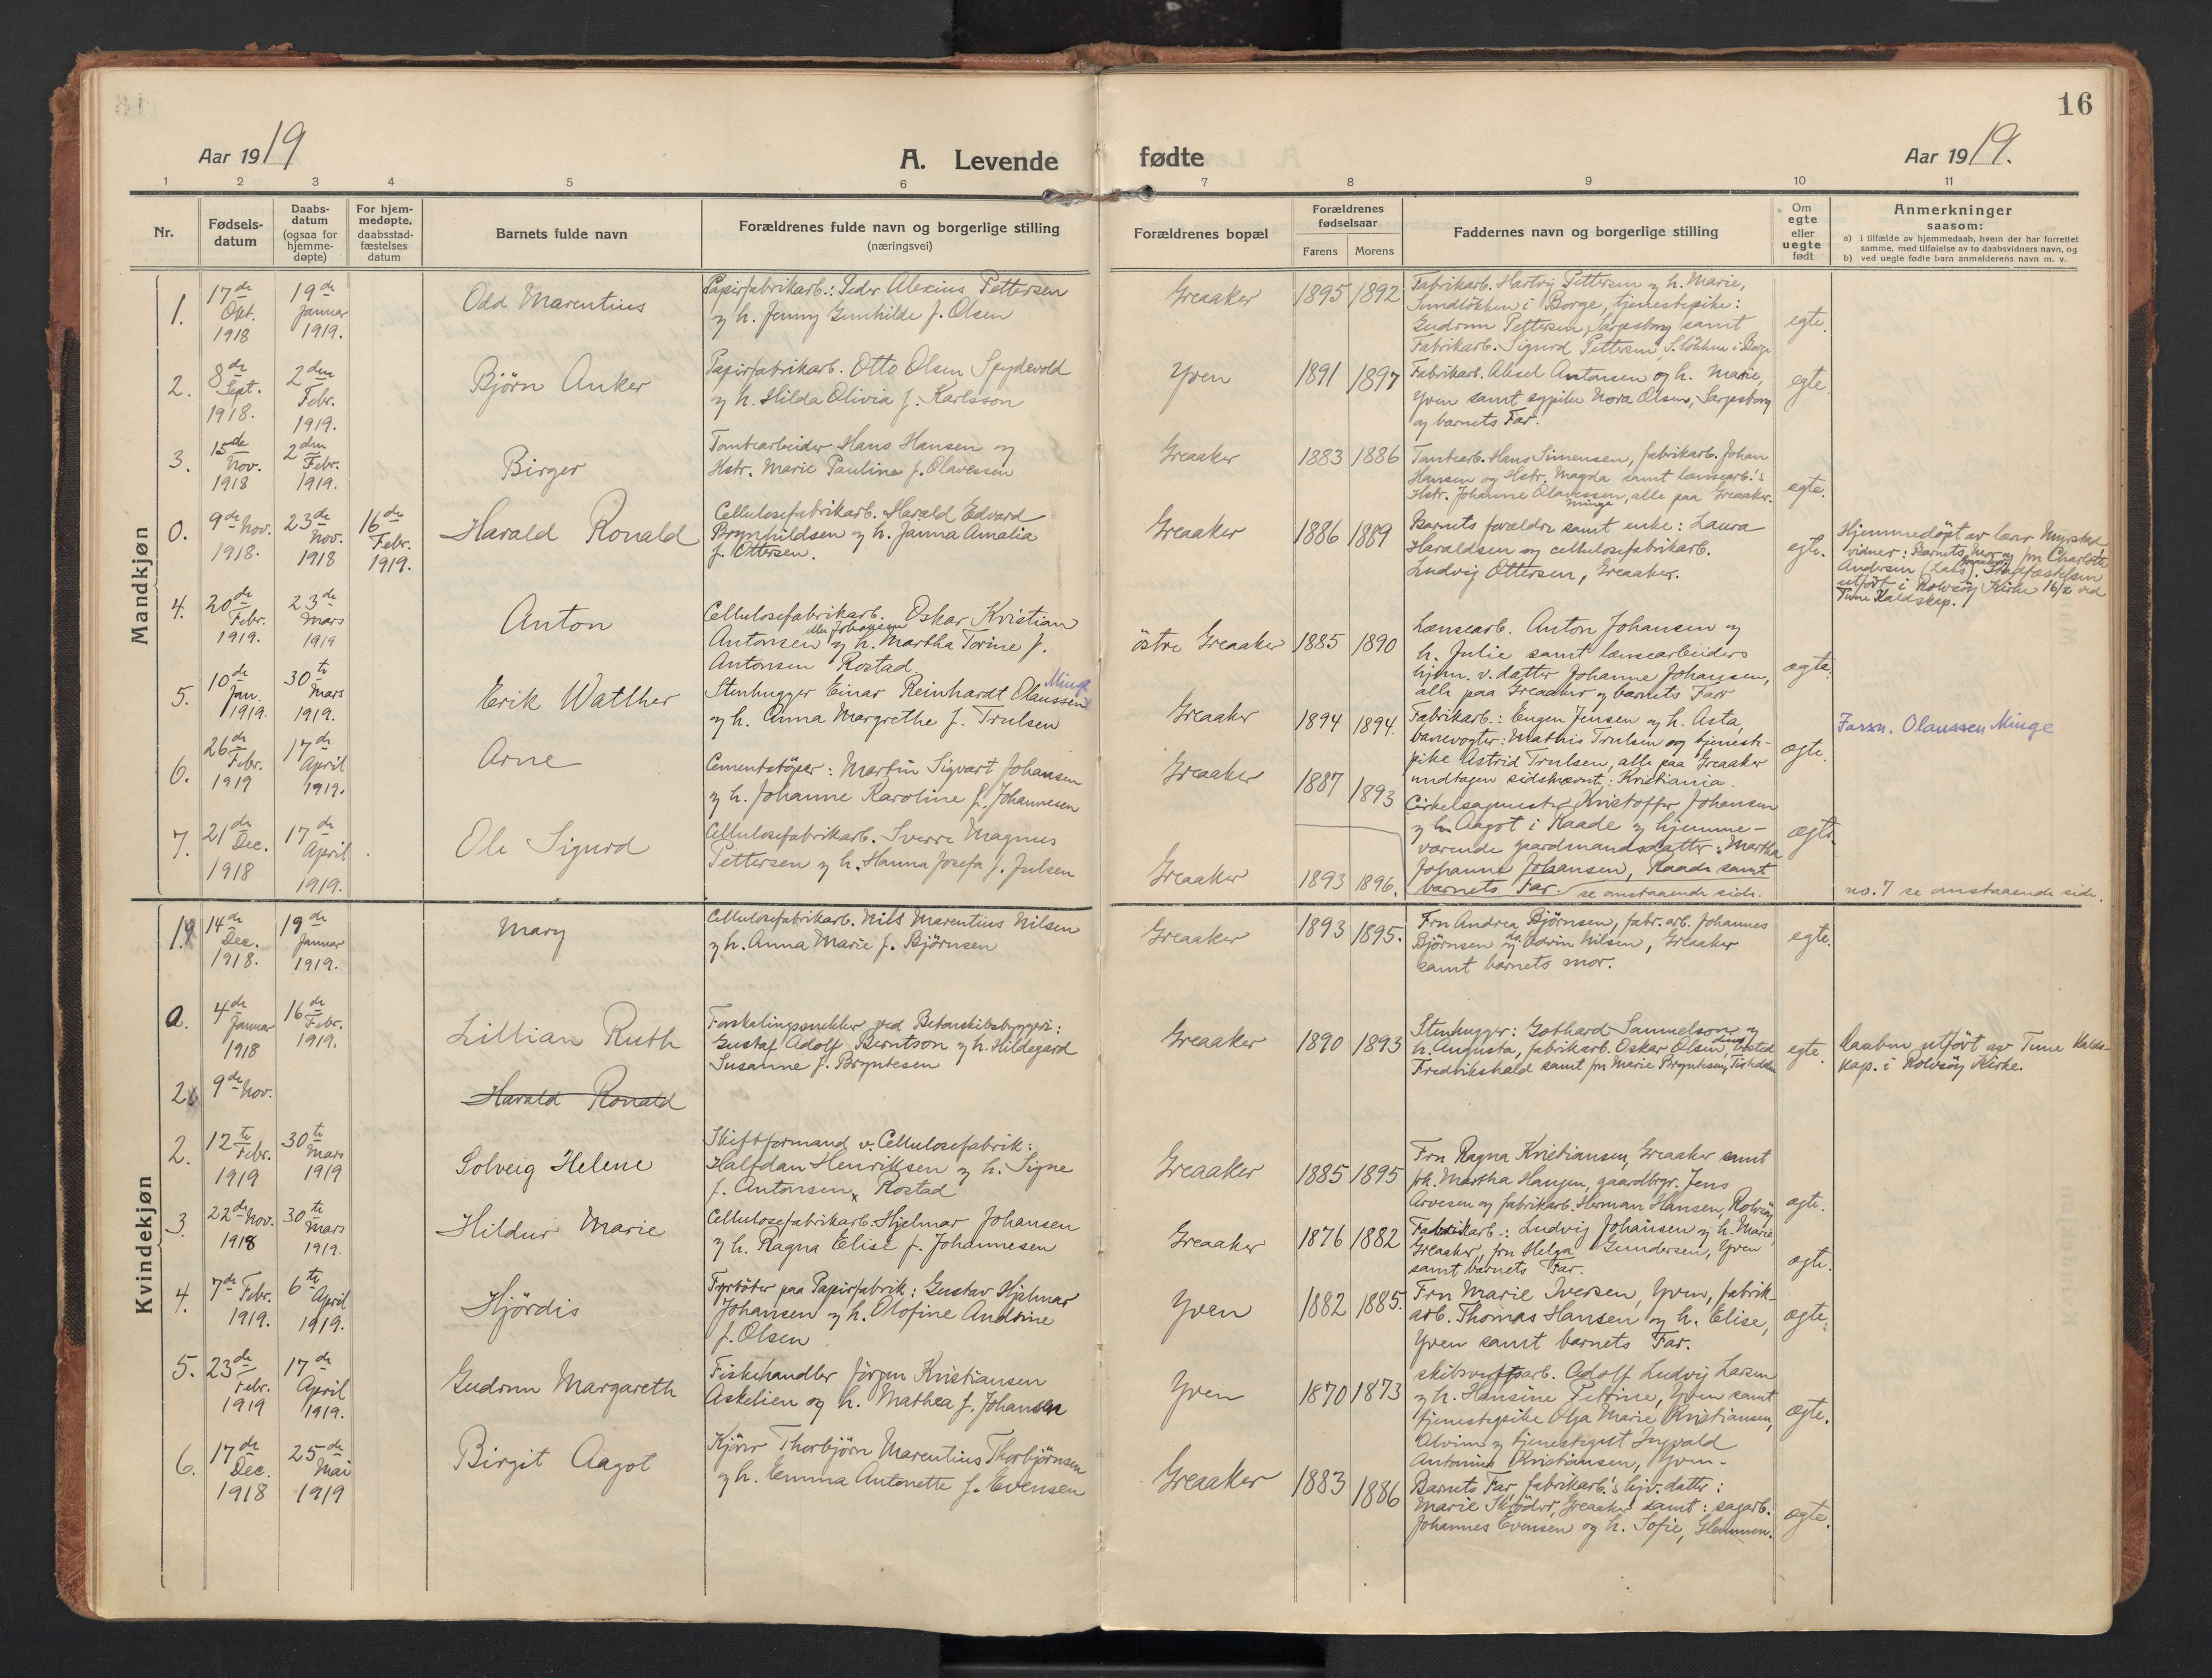 16
Aar 1919
A. Levende
fødte
Aar 1919.
1 2 3 4 5 6 7 8 9 10 11
Nr.
Fødsels-
datum
Daabs-
datum
(ogsaa for
hjemme-
døpte)
For hjem-
medøpte,
daabsstad-
fæstelses
datum
Barnets fulde navn
Forældrenes fulde navn og borgerlige stilling
(næringsvei)
Forældrenes bopæl
Forældrenes
fødselsaar
Farens Morens
Faddernes navn og borgerlige stilling
Om
egte
eller
uegte
født
Anmerkninger
saasom:
a) i tilfælde av hjemmedaab, hvem der har forrettet
samme, med tilføielse av to daabsvidners navn, og
b) ved uegte fødte barn anmelderens navn m. v.
Mandkjøn
1.
17de
Okt.
1918
19de
Januar
1919.
Odd Marentius
Papirfabrikarb.: Peder Alexius Pettersen
og h. Jenny Gunhilde f. Olsen
Greaaker
1895 1892
Fabrikarb. Hartvig Pettersen og h. Marie,
Sundløkken i Borge, tjenestepike:
Gudrun Pettersen, Sarpsborg samt
Fabrikarb. Sigurd Pettersen, S.løkken i Borge
egte.
2.
8de
Sept.
1918.
2den
Febr.
1919.
Bjørn Anker
Papirfabrikarb. Otto Olsen Spydevold
og h. Hilda Olivia f. Karlsson
Yven
1891 1897
Fabrikarb. Aksel Antonsen og h. Marie,
Yven samt sypike Nora Olsen, Sarpsborg
og barnets Far.
egte
3.
15de
Nov.
1918
2den
Febr.
1919.
Birger
Tomtearbeider Hans Hansen og
Hstr. Marie Pauline f. Olavessen
Greaaker
1883 1886
Tomtearb. Hans Simensen, fabrikarb. Johan
Hansen og Hstr. Magda samt lænsearb.'s
Hstr. Johanne Olavessen, alle paa Greaaker.
Minge
egte.
0.
9de Nov.
1918.
23de
Nov.
1918
16de
Febr.
1919.
Harald Ronald
Cellulosefabrikarb. Harald Edvard
Brynhildsen og h. Janna Amalia
f. Ottersen.
Greaaker
1886 1889
Barnets forældre samt enke: Laura
Haraldsen og cellulosefabrikarb.
Ludvig Ottersen, Greaaker.
egte.
Hjemmedøpt av lærer Myrstad
vidner: Barnets Mor og frn Charlotte
Andersen (Lars). Stadfæstelsen
utført i Rolvsøy Kirke 16/2 ved
Tune Kaldskap.
4.
20de
Febr.
1919.
23de
Mars
1919
Anton
Cellulosefabrikarb. Oskar Kristian
Antonsen og h. Martha Torine f.
eller Johansen
Antonsen Rostad
østre Greaaker
1885 1890
Lænsearb. Anton Johansen og
h. Julie samt lænsearbeiders
hjem. v. datter Johanne Johansen,
alle paa Greaaker og barnets Far
ægte.
5.
10de
Jan.
1919.
30te
Mars
1919.
Erik Walther
Stenhugger Einar Reinhardt Olaussen
Minge
og h. Anna Margrethe f. Trulsen
Greaaker
1894 1894.
Fabrikarb.: Eugen Jensen og h. Asta,
banevogter: Mathis Trulsen og tjeneste-
pike Astrid Trulsen, alle paa Greaaker
undtagen sidstnævnte: Kristiania.
ægte.
Farsn. Olaussen Minge
6.
26de
Febr.
1919
17de
April
1919.
Arne
Cementstøper: Martin Sigvart Johansen
og h. Johanne Karoline f. Johannesen
Greaaker
1887 1893
Cirkelsagmester Kristoffer Johansen
og h. Aagot i Raade og hjemme-
værende gaardmandsdatter: Martha
Johanne Johansen, Raade samt
barnets Far.
ægte.
7.
21de
Dec.
1918
17de
April
1919.
Ole Sigurd
Cellulosefabrikarb. Sverre Magnus
Pettersen og h. Hanna Josefa f. Julsen
Greaaker
1893 1896.
se omstaaende side.
no. 7 se omstaaende side.
Kvindekjøn
1.
14de
Dec.
1918.
19de
Januar
1919.
Mary
Cellulosefabrikarb. Nils Marentius Nilsen
og h. Anna Marie f. Bjørnsen
Greaaker
1893 1895.
Frn Andrea Bjørnsen, fabr.arb. Johannes
Bjørnsen og do Edvin Nilsen, Greaaker
samt barnets mor.
egte.
0.
4de
Januar
1918
16de
Febr.
1919.
Lillian Ruth
Forskalingssnekker ved Betonskibsbyggeri:
Gustaf Adolf Berntson og h. Hildegard
Susanne f. Bryntesen
Greaaker
1890 1893
Stenhugger: Gothard Samuelson og
h. Augusta, fabrikarb. Oskar Olsen,
Fredrikshald samt frn Marie Bryntesen, Tistedalen
egte.
Daaben utført av Tune Kalds-
kap. i Rolvsøy Kirke.
2.
9de Nov.
Harald Ronald
2.
12te
Febr.
1919
30te
Mars
1919
Solveig Helene
Skiftformand v. Cellulosefabrik:
Halfdan Henriksen og h. Signe
f. Antonsen Rostad
Greaaker
1885 1895
Frn Ragna Kristiansen, Greaaker samt
frk. Martha Haugen, gaardbrgr. Jens
Arvesen og fabrikarb. Herman Hansen, Rolvsøy
ægte.
3.
22de Nov.
1918
30te
Mars
1919.
Hildur Marie
Cellulosefabrikarb. Hjelmar Johansen
og h. Ragna Elise f. Johannesen
Greaaker
1876 1882
Fabrikarb.: Ludvig Johansen og h. Marie,
Greaaker, frn Helga Gundersen, Yven
samt barnets Far.
ægte.
4.
7de Febr.
1919.
6te
April
1919.
Hjördis
Fyrbøter paa Papirfabrik: Gustav Hjelmar
Johansen og h. Olofine Andrine
f. Olsen
Yven
1882 1885.
Frn Marie Iversen, Yven, fabrik-
arb. Thomas Hansen og h. Elise,
Yven samt barnets Far.
ægte.
5.
23de
Febr.
1919
17de
April
1919.
Gudrun Margareth
Fiskehandler Jörgen Kristiansen
Askelien og h. Mathea f. Johansen
Yven
1870 1873
skibsverftsarb. Adolf Ludvig Larsen
og h. Hansine Petrine, Yven samt
tjenestepike Olga Marie Kristiansen,
Alvim og tjenestegut Ingvald
Antonius Kristiansen, Yven.
ægte.
6.
17de
Dec.
1918
25de
Mai
1919
Birgit Aagot
Kjører Thorbjørn Marentius Thorbjørnsen
og h. Emma Antonette f. Evensen
Greaaker
1883 1886
Barnets Far, fabrikarb.'s hjv. datter:
Marie Skrøder, Greaaker samt: sagarb.
Johannes Evensen og h. Sofie, Glemmen.
ægte.